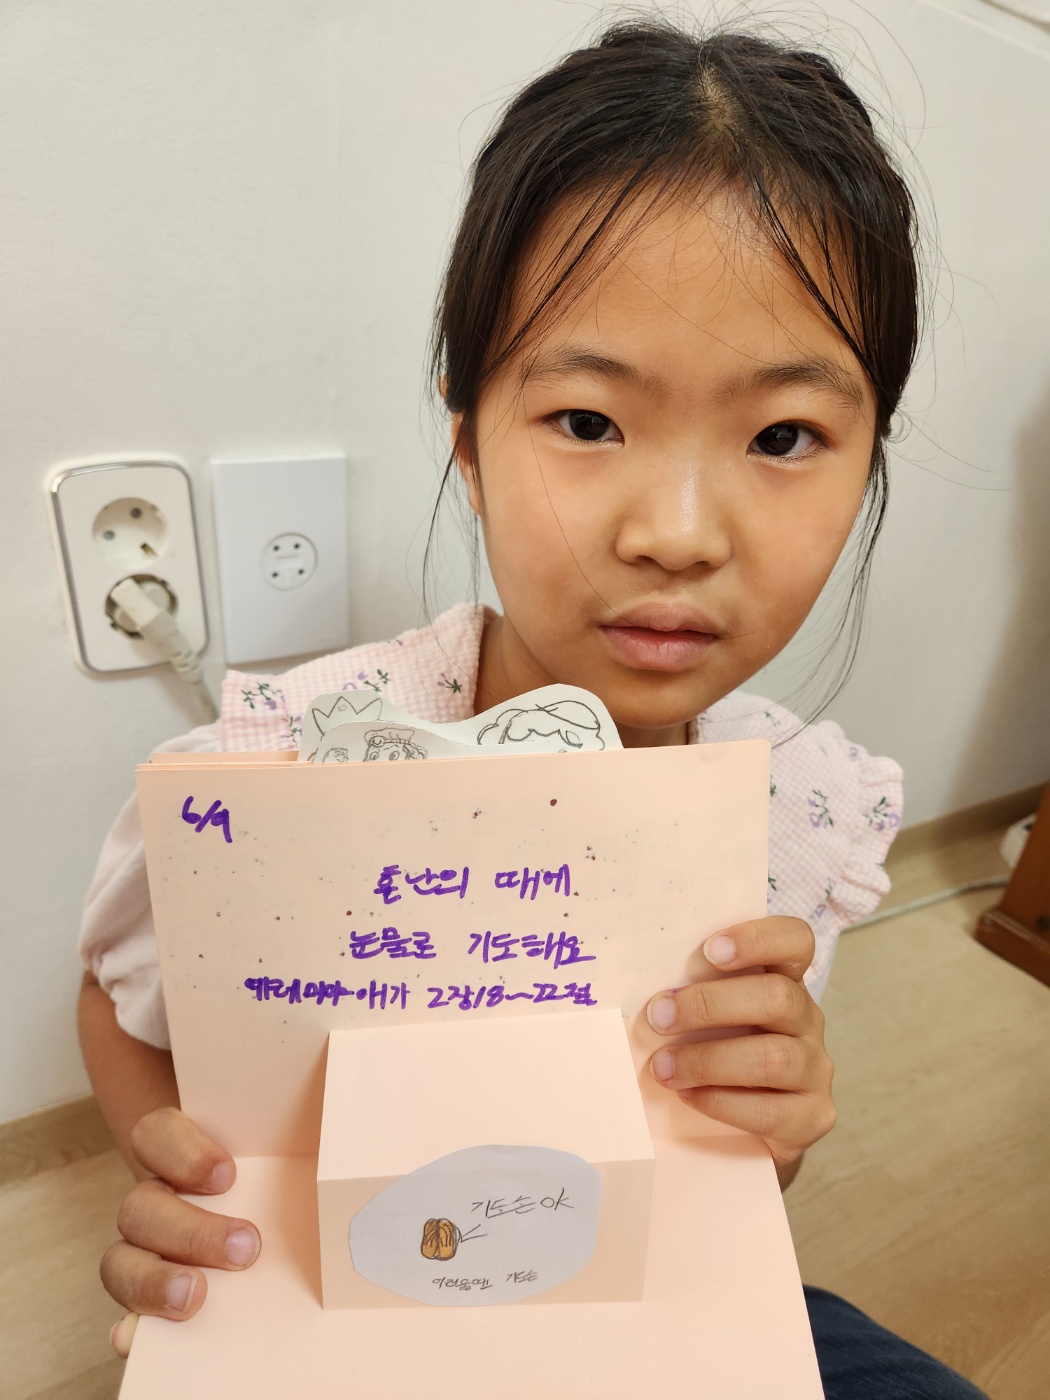 6/9
혼난의 때에
눈물로 기도해요
예레미야애가 2장18~22절
기도손이야
어려울땐 기도손